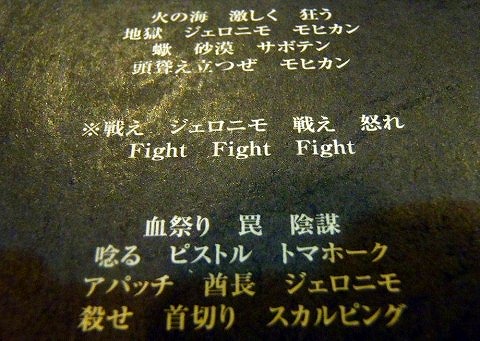 火の海 激しく 狂う
地獄 ジェロニモ モヒカン
蠍 砂漠 サボテン
頭聳え立つぜ モヒカン
※戦え ジェロニモ 戦え 怒れ
Fight Fight Fight
血祭り 罠 陰謀
唸る ピストル トマホーク
アパッチ 酋長 ジェロニモ
殺せ 首切り スカルピング